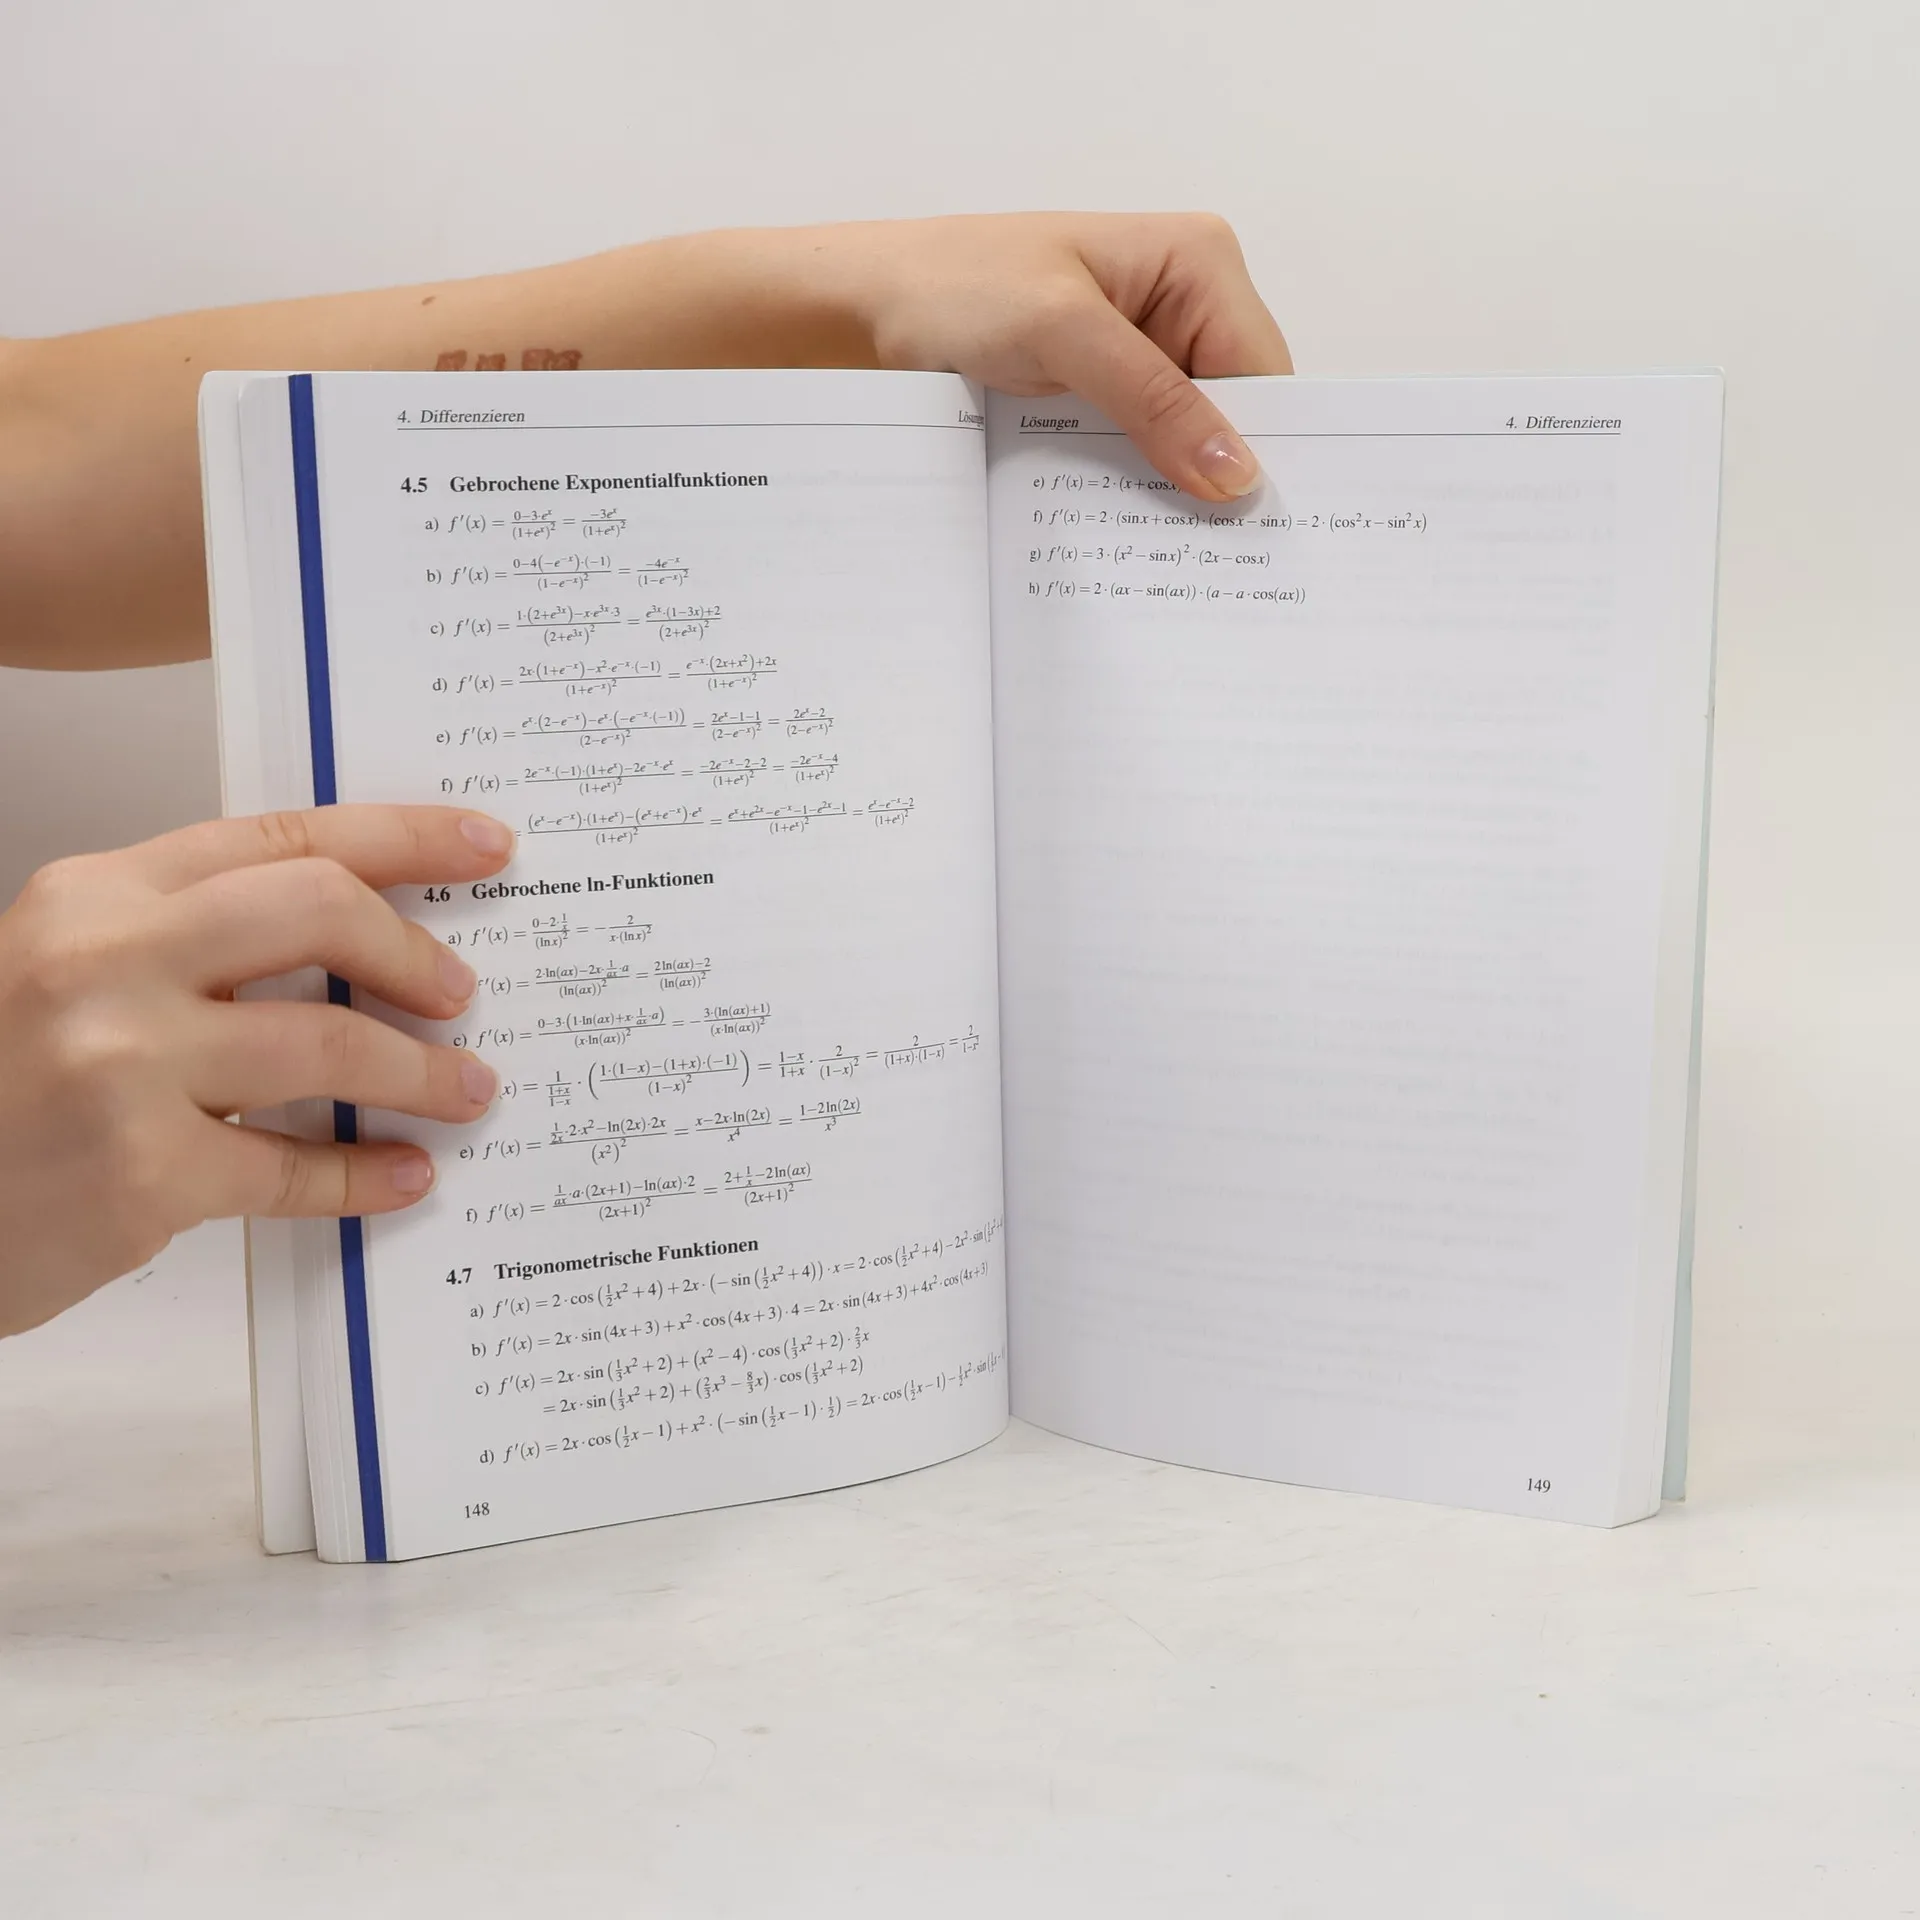 4. Differenzieren
4.5 Gebrochene Exponentialfunktionen
a) f'(x) = \frac{0-3·e^x}{(1+e^x)^2} = \frac{-3e^x}{(1+e^x)^2}
b) f'(x) = \frac{0-4(-e^{-x})·(-1)}{(1-e^{-x})^2} = \frac{-4e^{-x}}{(1-e^{-x})^2}
c) f'(x) = \frac{1·(2+e^{3x})-x·e^{3x}·3}{(2+e^{3x})^2} = \frac{e^{3x}·(1-3x)+2}{(2+e^{3x})^2}
d) f'(x) = \frac{2x·(1+e^{-x})-x^2·e^{-x}·(-1)}{(1+e^{-x})^2} = \frac{e^{-x}·(2x+x^2)+2x}{(1+e^{-x})^2}
e) f'(x) = \frac{e^x·(2-e^{-x})-e^x·(-e^{-x}·(-1))}{(2-e^{-x})^2} = \frac{2e^x-1-1}{(2-e^{-x})^2} = \frac{2e^x-2}{(2-e^{-x})^2}
f) f'(x) = \frac{2e^{-x}·(-1)·(1+e^x)-2e^{-x}·e^x}{(1+e^x)^2} = \frac{-2e^{-x}-2-2}{(1+e^x)^2} = \frac{-2e^{-x}-4}{(1+e^x)^2}
= \frac{(e^x-e^{-x})·(1+e^x)-(e^x+e^{-x})·e^x}{(1+e^x)^2} = \frac{e^x+e^{2x}-e^{-x}-1-e^{2x}-1}{(1+e^x)^2} = \frac{e^x-e^{-x}-2}{(1+e^x)^2}
4.6 Gebrochene ln-Funktionen
a) f'(x) = \frac{0-2·\frac{1}{x}}{(ln x)^2} = -\frac{2}{x·(ln x)^2}
f'(x) = \frac{2·ln(ax)-2x·\frac{1}{ax}·a}{(ln(ax))^2} = \frac{2ln(ax)-2}{(ln(ax))^2}
c) f'(x) = \frac{0-3·(1·ln(ax)+x·\frac{1}{ax}·a)}{(x·ln(ax))^2} = -\frac{3·(ln(ax)+1)}{(x·ln(ax))^2}
x) = \frac{1}{\frac{1+x}{1-x}} · (\frac{1·(1-x)-(1+x)·(-1)}{(1-x)^2}) = \frac{1-x}{1+x} · \frac{2}{(1-x)^2} = \frac{2}{(1+x)·(1-x)} = \frac{2}{1-x^2}
e) f'(x) = \frac{\frac{1}{2x}·2·x^2-ln(2x)·2x}{(x^2)^2} = \frac{x-2x·ln(2x)}{x^4} = \frac{1-2ln(2x)}{x^3}
f) f'(x) = \frac{\frac{1}{ax}·a·(2x+1)-ln(ax)·2}{(2x+1)^2} = \frac{2+\frac{1}{x}-2ln(ax)}{(2x+1)^2}
4.7 Trigonometrische Funktionen
a) f'(x) = 2·cos(\frac{1}{2}x^2+4)+2x·(-sin(\frac{1}{2}x^2+4))·x = 2·cos(\frac{1}{2}x^2+4)-2x^2·sin(\frac{1}{2}x^2+4
b) f'(x) = 2x·sin(4x+3)+x^2·cos(4x+3)·4 = 2x·sin(4x+3)+4x^2·cos(4x+3)
c) f'(x) = 2x·sin(\frac{1}{3}x^2+2)+(x^2-4)·cos(\frac{1}{3}x^2+2)·\frac{2}{3}x
= 2x·sin(\frac{1}{3}x^2+2)+(\frac{2}{3}x^3-\frac{8}{3}x)·cos(\frac{1}{3}x^2+2)
d) f'(x) = 2x·cos(\frac{1}{2}x-1)+x^2·(-sin(\frac{1}{2}x-1)·\frac{1}{2}) = 2x·cos(\frac{1}{2}x-1)-\frac{1}{2}x^2·sin(\frac{1}{2}x-
148
Lösungen 4. Differenzieren
e) f'(x) = 2·(x+cos x)
f) f'(x) = 2·(sin x+cos x)·(cos x-sin x) = 2·(cos^2 x-sin^2 x)
g) f'(x) = 3·(x^2-sin x)^2·(2x-cos x)
h) f'(x) = 2·(ax-sin(ax))·(a-a·cos(ax))
149